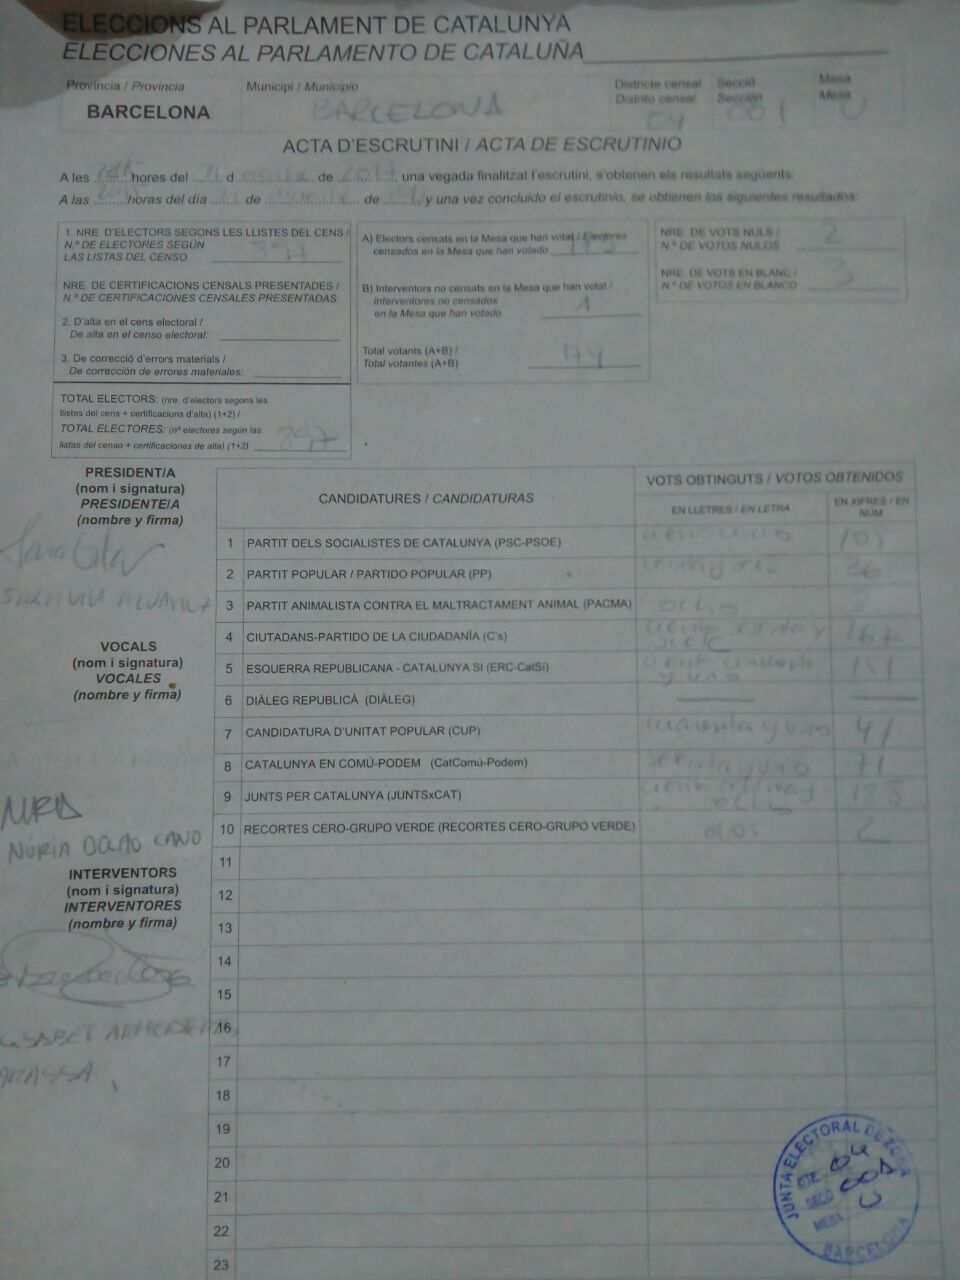 ELECCIONS AL PARLAMENT DE CATALUNYA
ELECCIONES AL PARLAMENTO DE CATALUÑA
Província / Provincia
BARCELONA
Municipi / Municipio
BARCELONA
Districte censal
Distrito censal
04
Secció
Sección
001
Mesa
Mesa
U
ACTA D'ESCRUTINI / ACTA DE ESCRUTINIO
A les hores del d de 2017, una vegada finalitzat l'escrutini, s'obtenen els resultats següents:
A las horas del día de de , y una vez concluido el escrutinio, se obtienen los siguientes resultados:
1. NRE. D'ELECTORS SEGONS LES LLISTES DEL CENS /
N.º DE ELECTORES SEGÚN
LAS LISTAS DEL CENSO 897
NRE. DE CERTIFICACIONS CENSALS PRESENTADES /
N.º DE CERTIFICACIONES CENSALES PRESENTADAS
2. D'alta en el cens electoral /
De alta en el censo electoral:
3. De correcció d'errors materials /
De corrección de errores materiales:
TOTAL ELECTORS: (nre. d'electors segons les
llistes del cens + certificacions d'alta) (1+2) /
TOTAL ELECTORES: (nº electores según las
listas del censo + certificaciones de alta) (1+2) 897
A) Electors censats en la Mesa que han votat / Electores
censados en la Mesa que han votado
B) Interventors no censats en la Mesa que han votat /
Interventores no censados
en la Mesa que han votado 1
Total votants (A+B) /
Total votantes (A+B)
NRE. DE VOTS NULS /
N.º DE VOTOS NULOS 2
NRE. DE VOTS EN BLANC /
N.º DE VOTOS EN BLANCO 3
PRESIDENT/A
(nom i signatura)
PRESIDENTE/A
(nombre y firma)
VOCALS
(nom i signatura)
VOCALES
(nombre y firma)
NURIA
NÚRIA BOLAO CANO
INTERVENTORS
(nom i signatura)
INTERVENTORES
(nombre y firma)
CANDIDATURES / CANDIDATURAS
VOTS OBTINGUTS / VOTOS OBTENIDOS
EN LLETRES / EN LETRA
EN XIFRES / EN NÚM.
1 PARTIT DELS SOCIALISTES DE CATALUNYA (PSC-PSOE) 105
2 PARTIT POPULAR / PARTIDO POPULAR (PP) 36
3 PARTIT ANIMALISTA CONTRA EL MALTRACTAMENT ANIMAL (PACMA) ocho 8
4 CIUTADANS-PARTIDO DE LA CIUDADANÍA (C's) siete 167
5 ESQUERRA REPUBLICANA - CATALUNYA SÍ (ERC-CatSí) ciento cincuenta y uno 151
6 DIÀLEG REPUBLICÀ (DIÀLEG)
7 CANDIDATURA D'UNITAT POPULAR (CUP) cuarenta y uno 41
8 CATALUNYA EN COMÚ-PODEM (CatComú-Podem) setenta y uno 71
9 JUNTS PER CATALUNYA (JUNTSxCAT) ocho 188
10 RECORTES CERO-GRUPO VERDE (RECORTES CERO-GRUPO VERDE) dos 2
11
12
13
14
15
16
17
18
19
20
21
22
23
JUNTA ELECTORAL DE ZONA
DTE. 04
SECC. 001
MESA U
BARCELONA